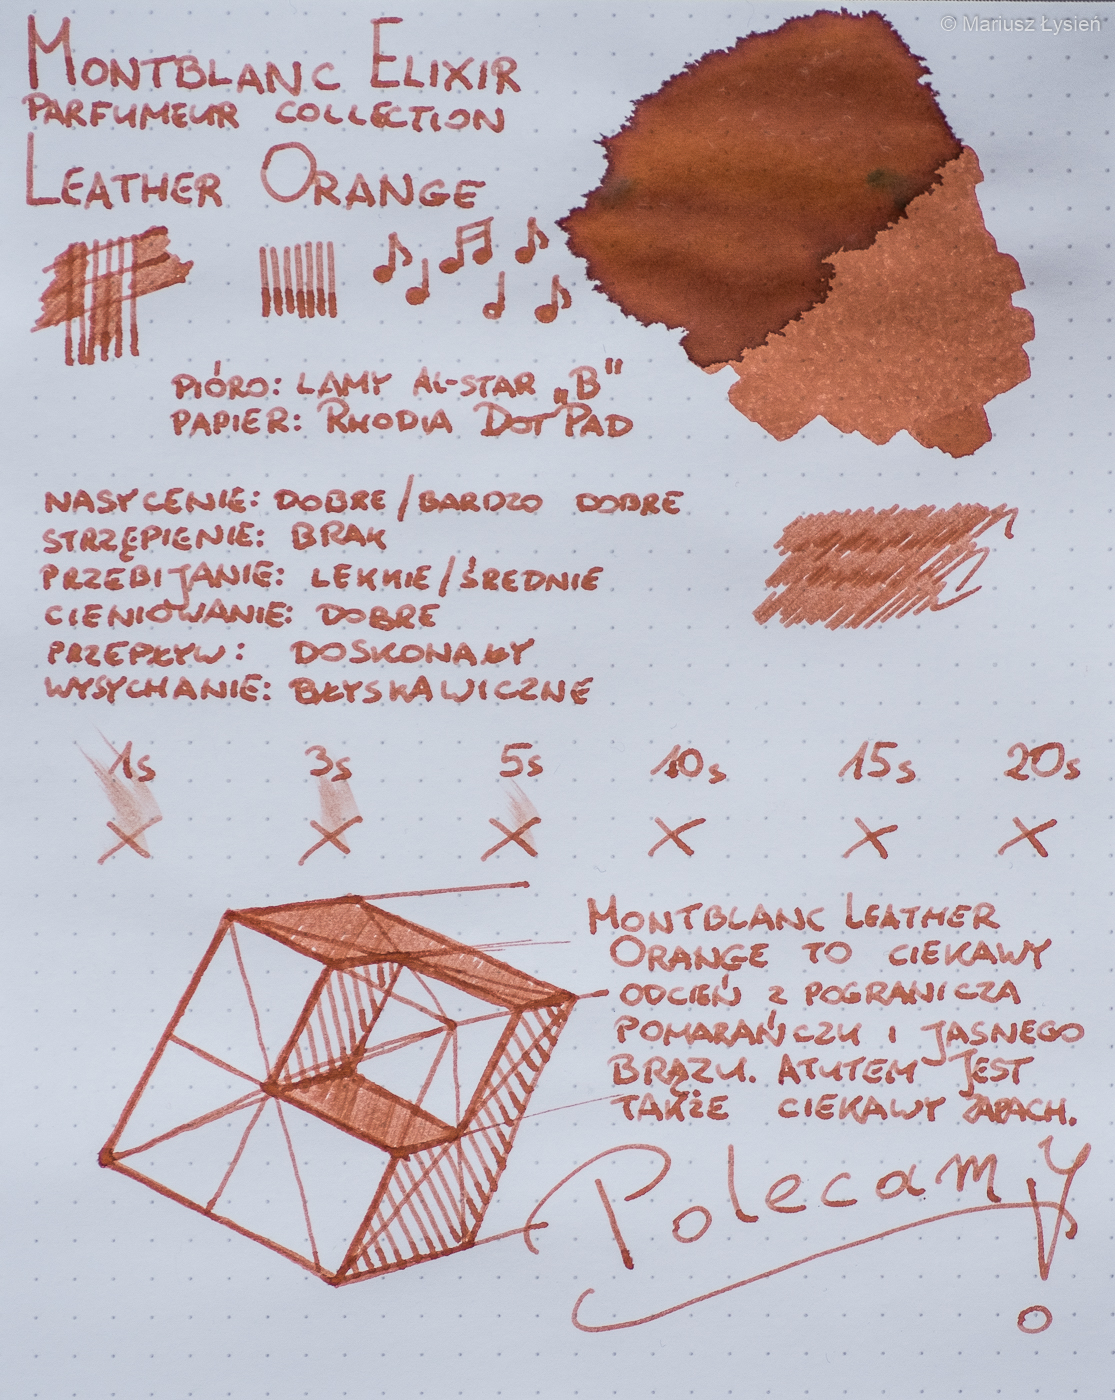 © Mariusz Łysień
MONTBLANC ELIXIR
PARFUMEUR COLLECTION
LEATHER ORANGE
PIÓRO: LAMY AL-STAR „B"
PAPIER: RHODIA DOT PAD
NASYCENIE: DOBRE/BARDZO DOBRE
STRZĘPIENIE: BRAK
PRZEBIJANIE: LEKKIE/ŚREDNIE
CIENIOWANIE: DOBRE
PRZEPŁYW: DOSKONAŁY
WYSYCHANIE: BŁYSKAWICZNE
1s 3s 5s 10s 15s 20s
MONTBLANC LEATHER
ORANGE TO CIEKAWY
ODCIEŃ Z POGRANICZA
POMARAŃCZU I JASNEGO
BRĄZU. ATUTEM JEST
TAKŻE CIEKAWY ZAPACH.
Polecamy!